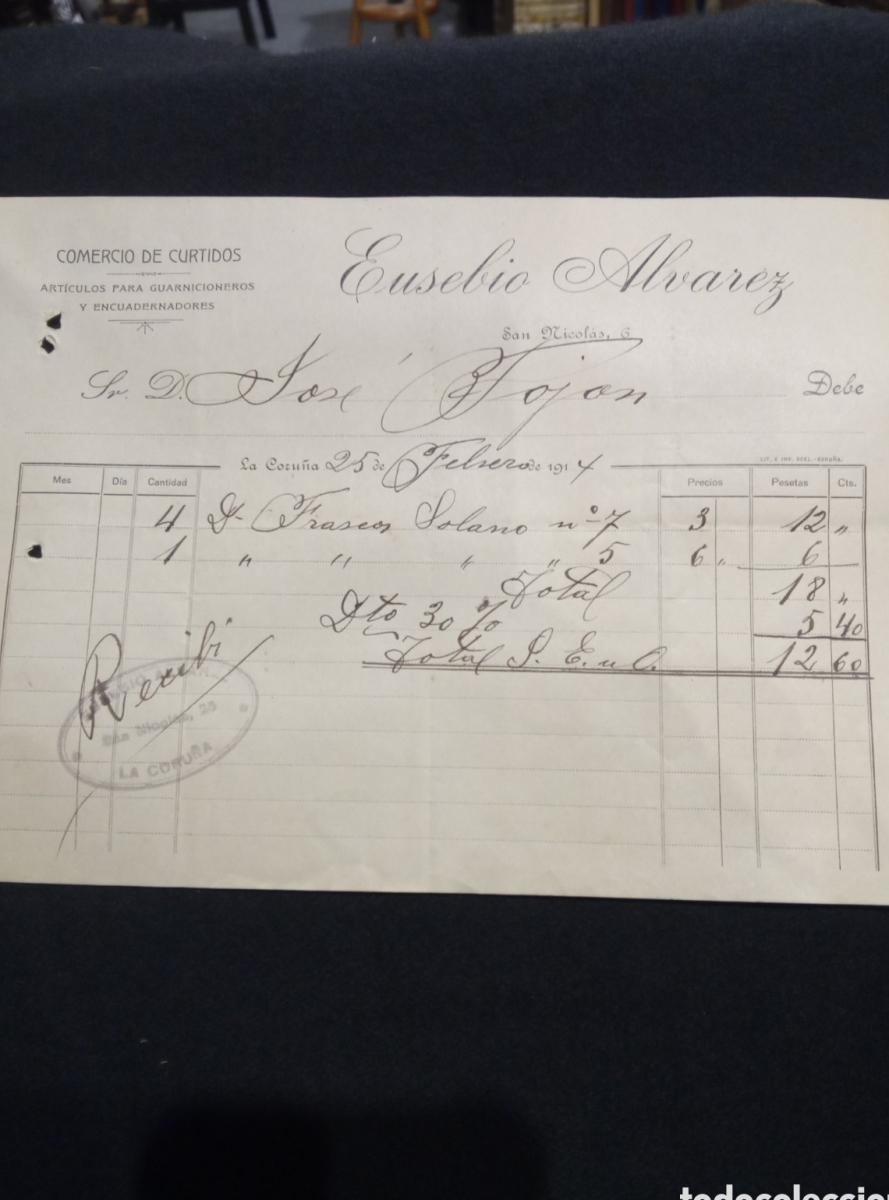 COMERCIO DE CURTIDOS
ARTÍCULOS PARA GUARNICIONEROS
Y ENCUADERNADORES
Eusebio Alvarez
San Nicolás, 6
Sr. D. José Tojon Debe
La Coruña 25 de Febrero de 1914
LIT. E IMP. ROEL.-CORUÑA.
Mes Día Cantidad Precios Pesetas Cts.
4 Dª Frascos Solano nº 7 3 12 "
1 " " " " 5 6 " 6
Total 18 "
Dto 30 % 5 40
Total S. E. u O. 12 60
Recibí
San Nicolás, 25
LA CORUÑA
todocoleccion